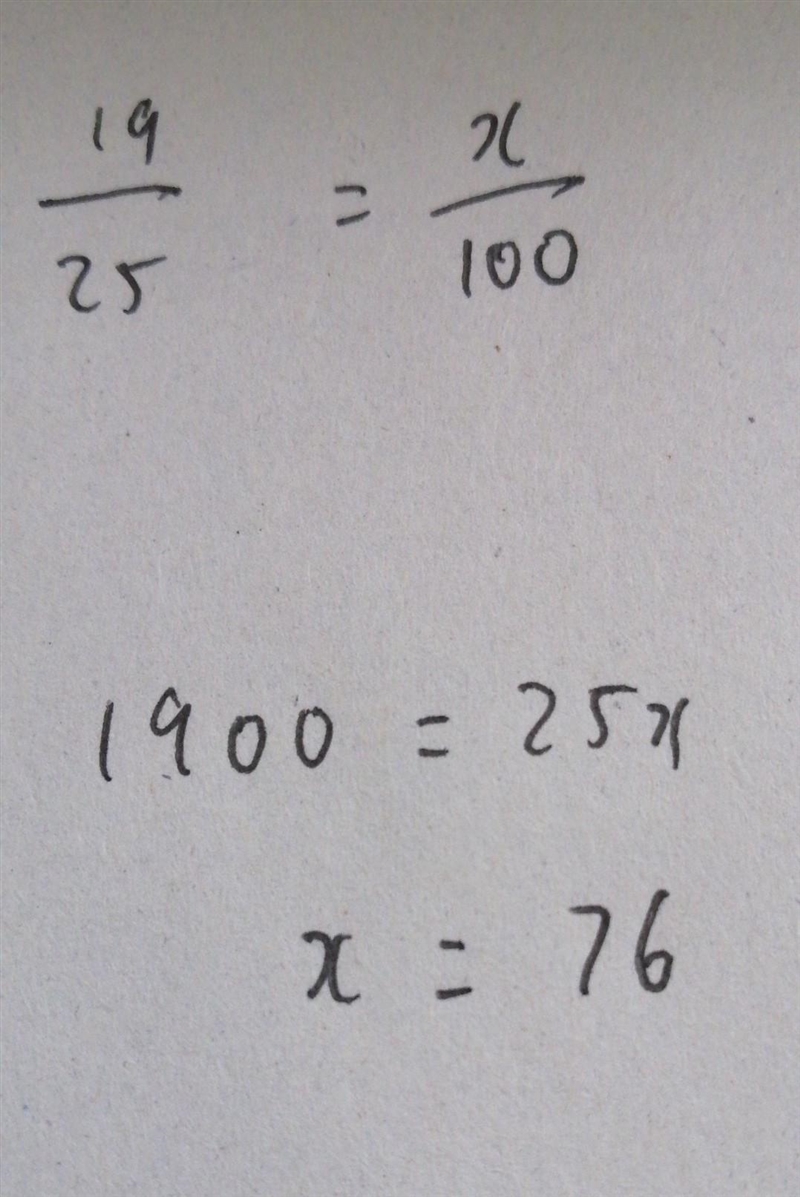 19/25 = x/100
1900 = 25x
x = 76